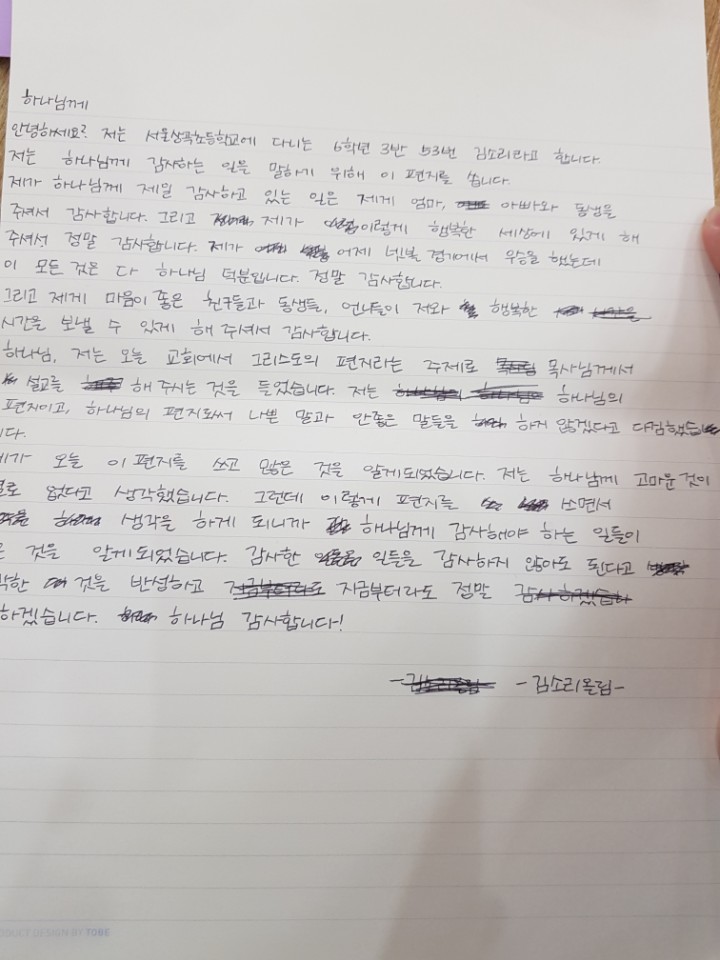 하나님께
안녕하세요? 저는 서울상곡초등학교에 다니는 6학년 3반 53번 김소리라고 합니다.
저는 하나님께 감사하는 일을 말하기 위해 이 편지를 씁니다.
제가 하나님께 제일 감사하고 있는 일은 제게 엄마, 아빠와 동생을
주셔서 감사합니다. 그리고 제가 이렇게 행복한 세상에 있게 해
주셔서 정말 감사합니다. 제가 어제 넷볼 경기에서 우승을 했는데
이 모든 것은 다 하나님 덕분입니다. 정말 감사합니다.
그리고 제게 마음이 좋은 친구들과 동생들, 언니들이 저와 행복한
시간을 보낼 수 있게 해 주셔서 감사합니다.
하나님, 저는 오늘 교회에서 그리스도의 편지라는 주제로 목사님께서
설교를 해 주시는 것을 들었습니다. 저는 하나님의
편지이고, 하나님의 편지로써 나쁜 말과 안좋은 말들을 하지 않겠다고 다짐했습니
다.
제가 오늘 이 편지를 쓰고 많은 것을 알게되었습니다. 저는 하나님께 고마운 것이
별로 없다고 생각했습니다. 그런데 이렇게 편지를 쓰면서
생각을 하게 되니까 하나님께 감사해야 하는 일들이
것을 알게되었습니다. 감사한 일들을 감사하지 않아도 된다고
각한 것을 반성하고 지금부터라도 정말
하겠습니다. 하나님 감사합니다!
- 김소리올림-
PRODUCT DESIGN BY TOBE